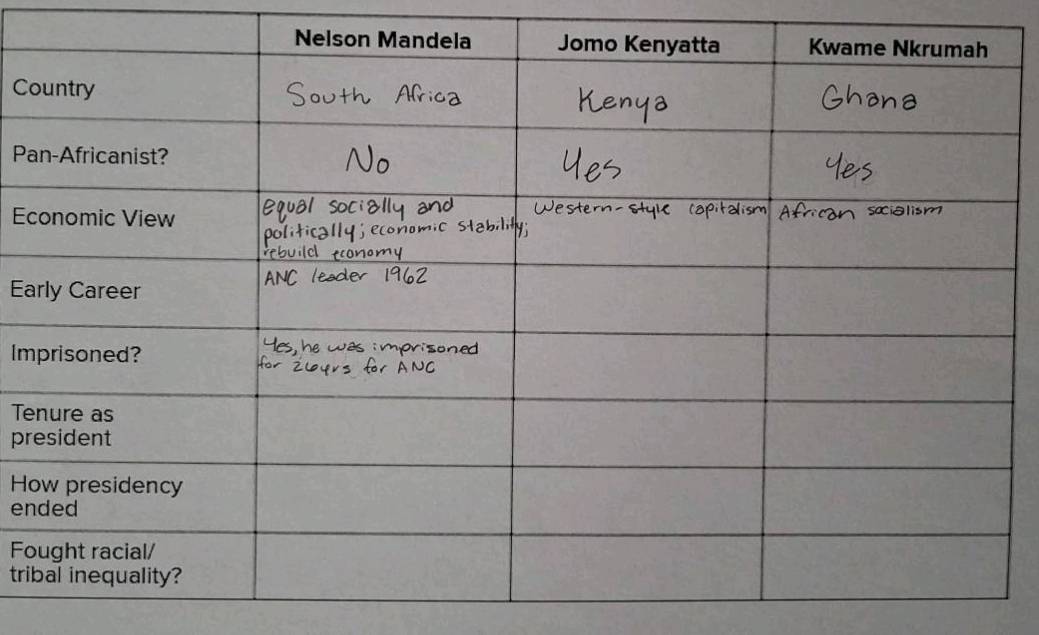 Nelson Mandela Jomo Kenyatta Kwame Nkrumah
Country South Africa Kenya Ghana
Pan-Africanist? No Yes Yes
Economic View equal socially and Western-style capitalism African socialism
politically; economic stability;
rebuild economy
Early Career ANC leader 1962
Imprisoned? Yes, he was imprisoned
for 26yrs for ANC
Tenure as
president
How presidency
ended
Fought racial/
tribal inequality?